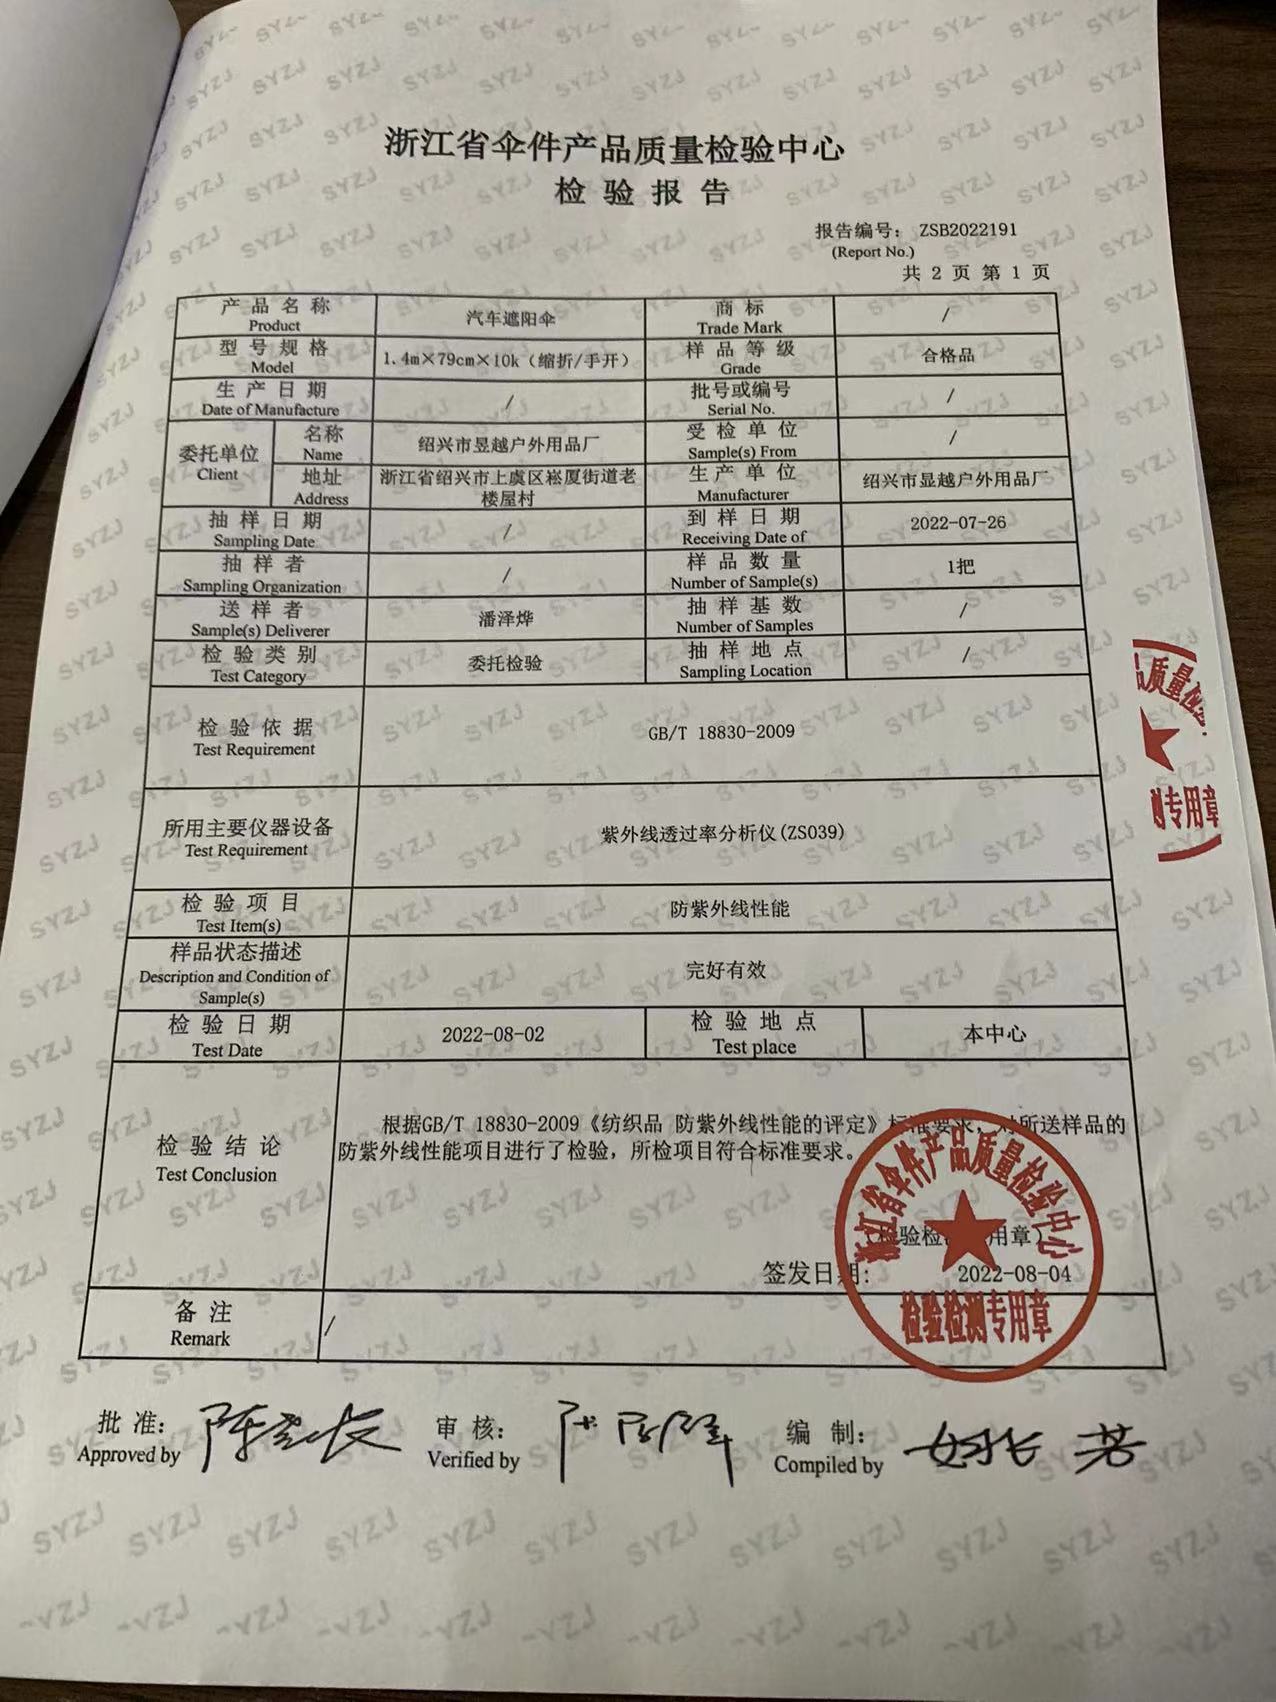 浙江省伞件产品质量检验中心
检 验 报 告
报告编号： ZSB2022191
(Report No.)
共 2 页 第 1 页
产 品 名 称
Product
汽车遮阳伞
商 标
Trade Mark
/
型 号 规 格
Model
1.4m×79cm×10k（缩折/手开）
样 品 等 级
Grade
合格品
生 产 日 期
Date of Manufacture
/
批号或编号
Serial No.
/
委托单位
Client
名称
Name
绍兴市昱越户外用品厂
受 检 单 位
Sample(s) From
/
地址
Address
浙江省绍兴市上虞区崧厦街道老
楼屋村
生 产 单 位
Manufacturer
绍兴市显越户外用品厂
抽 样 日 期
Sampling Date
/
到 样 日 期
Receiving Date of
2022-07-26
抽 样 者
Sampling Organization
/
样 品 数 量
Number of Sample(s)
1把
送 样 者
Sample(s) Deliverer
潘泽烨
抽 样 基 数
Number of Samples
/
检 验 类 别
Test Category
委托检验
抽 样 地 点
Sampling Location
/
检 验 依 据
Test Requirement
GB/T 18830-2009
所用主要仪器设备
Test Requirement
紫外线透过率分析仪(ZS039)
检 验 项 目
Test Item(s)
防紫外线性能
样品状态描述
Description and Condition of
Sample(s)
完好有效
检 验 日 期
Test Date
2022-08-02
检 验 地 点
Test place
本中心
检 验 结 论
Test Conclusion
根据GB/T 18830-2009《纺织品 防紫外线性能的评定》标准要求，对所送样品的
防紫外线性能项目进行了检验，所检项目符合标准要求。
（检验检测专用章）
签发日期: 2022-08-04
浙江省伞件产品质量检验中心
检验检测专用章
备 注
Remark
/
批 准:
Approved by
审 核:
Verified by
编 制:
Compiled by
品质量检
测专用章
SYZJ